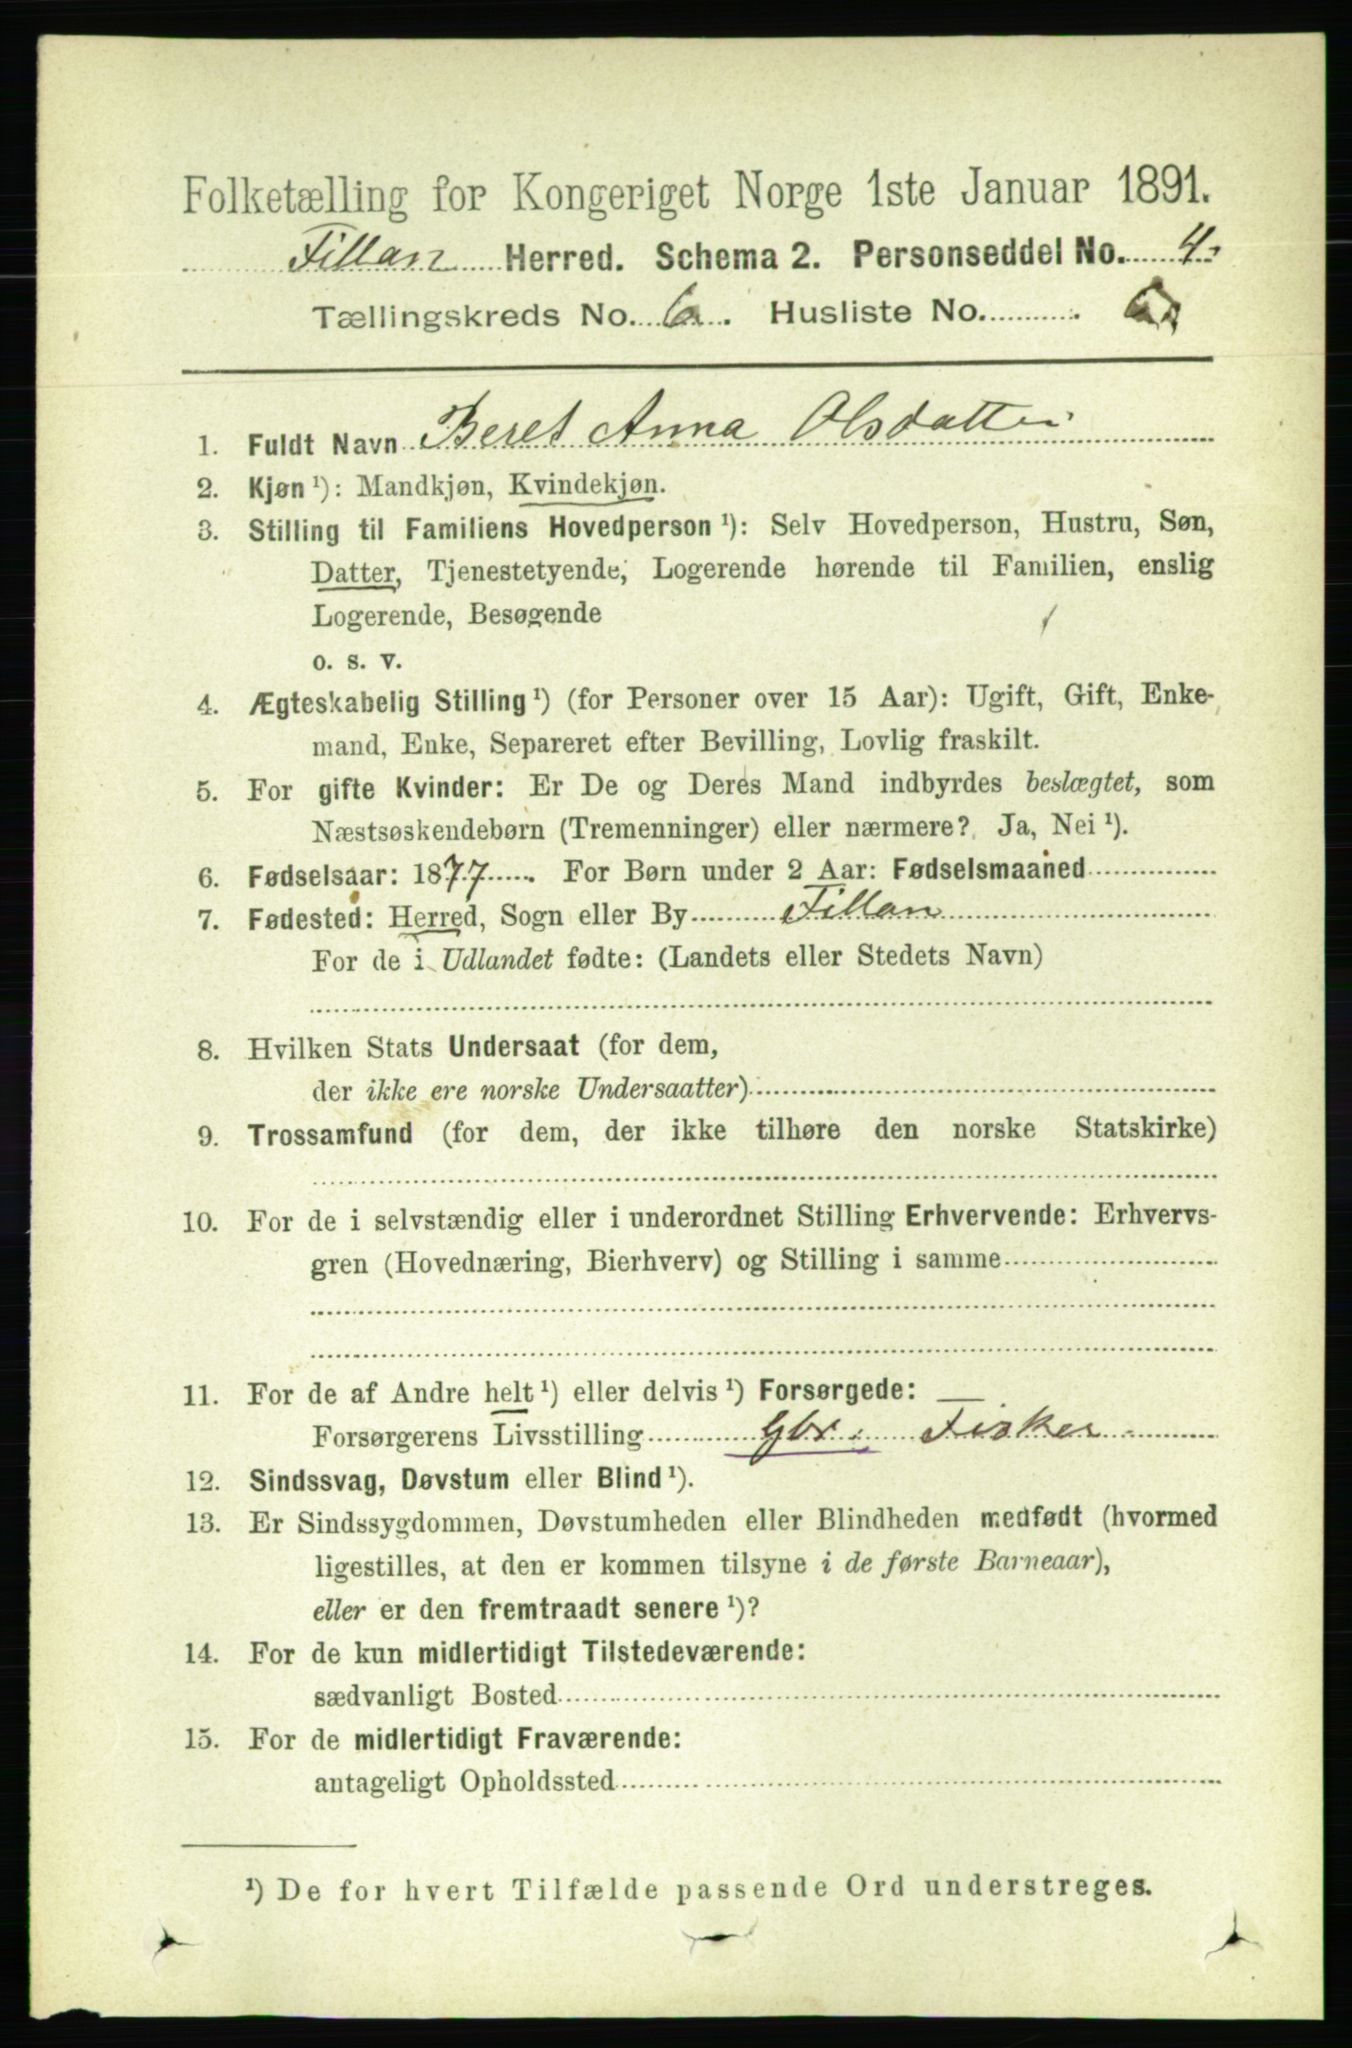 Folketælling for Kongeriget Norge 1ste Januar 1891.
Fillan Herred. Schema 2. Personseddel No. 4.
Tællingskreds No. 6. Husliste No.
1. Fuldt Navn Beret Anna Olsdatter
2. Kjøn ¹): Mandkjøn, Kvindekjøn.
3. Stilling til Familiens Hovedperson ¹): Selv Hovedperson, Hustru, Søn,
Datter, Tjenestetyende, Logerende hørende til Familien, enslig
Logerende, Besøgende
o. s. v.
4. Ægteskabelig Stilling ¹) (for Personer over 15 Aar): Ugift, Gift, Enke-
mand, Enke, Separeret efter Bevilling, Lovlig fraskilt.
5. For gifte Kvinder: Er De og Deres Mand indbyrdes beslægtet, som
Næstsøskendebørn (Tremenninger) eller nærmere? Ja, Nei ¹).
6. Fødselsaar: 1877. For Børn under 2 Aar: Fødselsmaaned
7. Fødested: Herred, Sogn eller By Fillan
For de i Udlandet fødte: (Landets eller Stedets Navn)
8. Hvilken Stats Undersaat (for dem,
der ikke ere norske Undersaatter)
9. Trossamfund (for dem, der ikke tilhøre den norske Statskirke)
10. For de i selvstændig eller i underordnet Stilling Erhvervende: Erhvervs-
gren (Hovednæring, Bierhverv) og Stilling i samme
11. For de af Andre helt ¹) eller delvis ¹) Forsørgede:
Forsørgerens Livsstilling Gbr. Fisker
12. Sindssvag, Døvstum eller Blind ¹).
13. Er Sindssygdommen, Døvstumheden eller Blindheden medfødt (hvormed
ligestilles, at den er kommen tilsyne i de første Barneaar),
eller er den fremtraadt senere ¹)?
14. For de kun midlertidigt Tilstedeværende:
sædvanligt Bosted
15. For de midlertidigt Fraværende:
antageligt Opholdssted
¹) De for hvert Tilfælde passende Ord understreges.